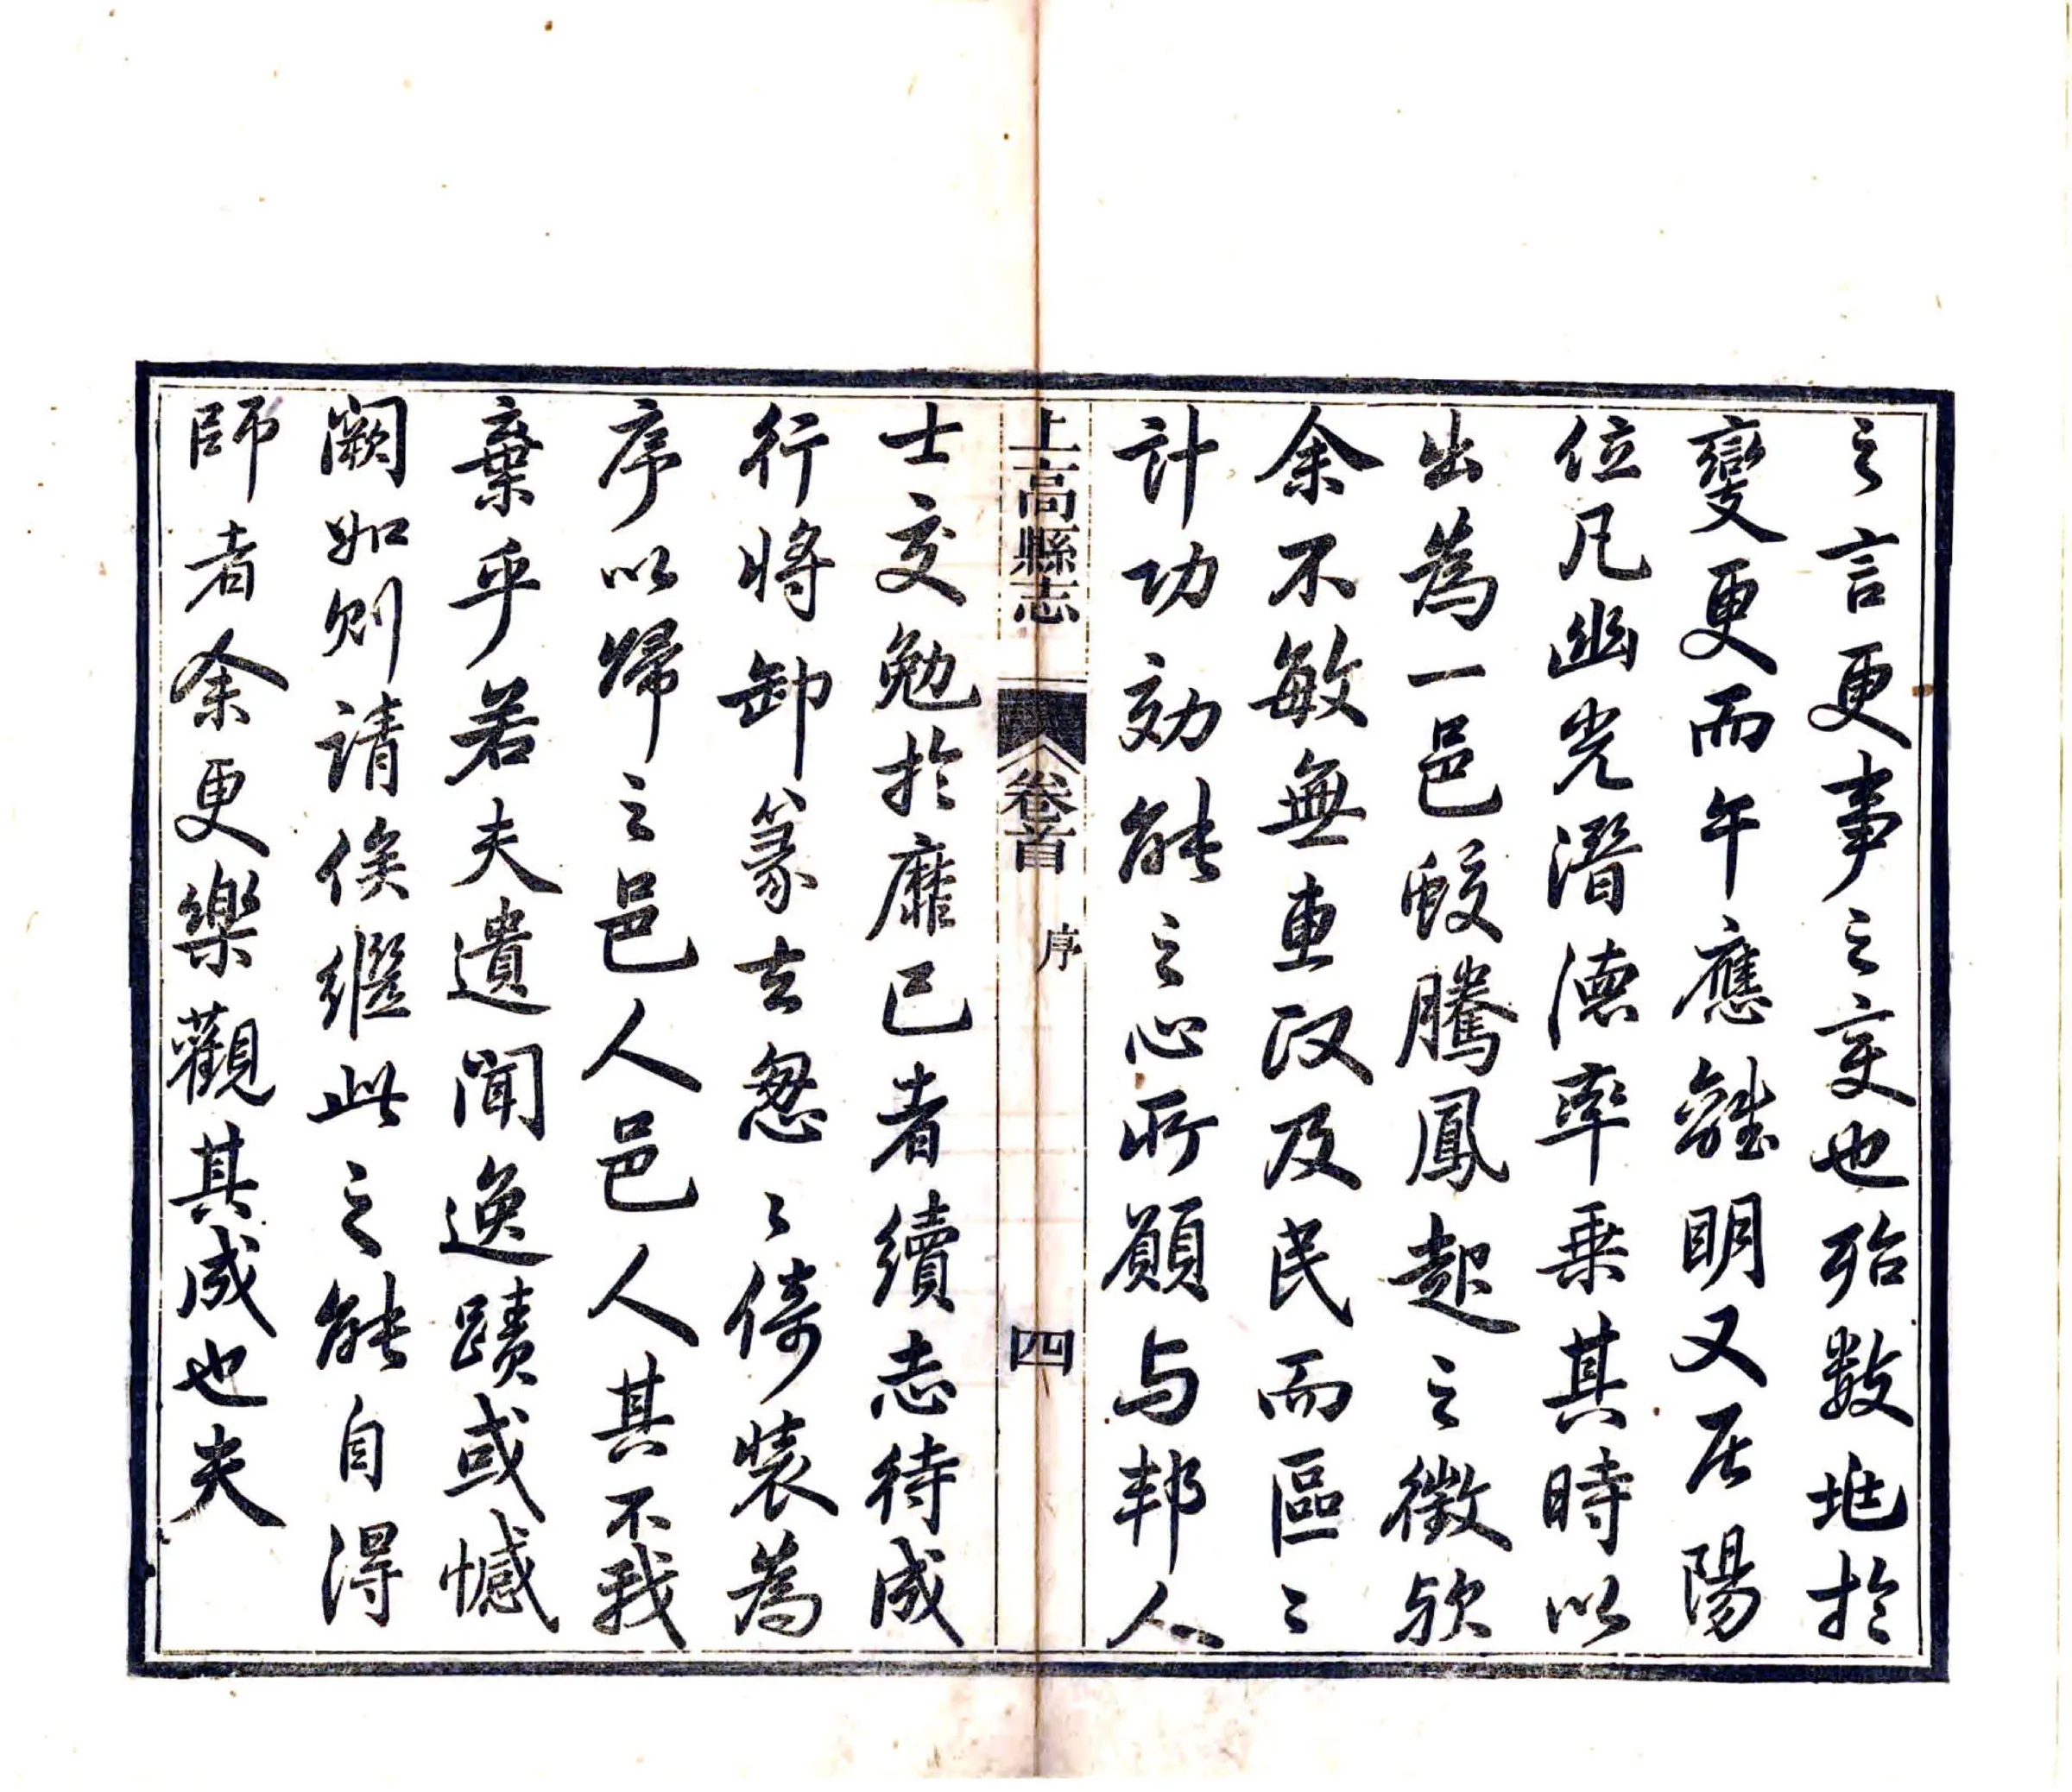 之言更事之变也殆数地於
變更而午應離明又居陽
位凡幽光潛德率乗其時以
出為一邑蛟騰鳳起之徵欤
余不敏無車政及民而區〻
計功効能之心所願与邦人
上高縣志
卷首
序
四
士交勉於靡已者續志待成
行將卸篆去怱〻倚裝為
序以歸之邑人邑人其不我
棄乎若夫遺聞逸蹟或憾
闕如則请俟繼此之能自得
師者余更樂觀其成也夫